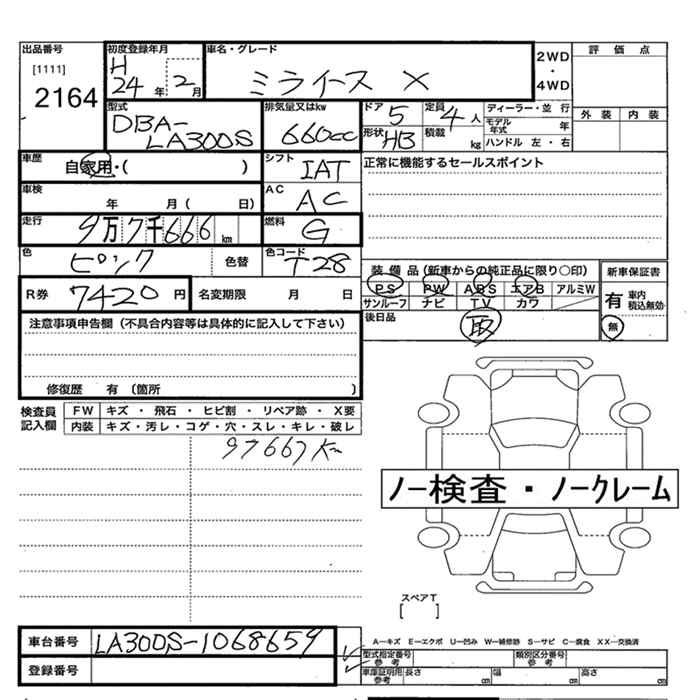 出品番号 初度登録年月 車名・グレード 2WD ・ 4WD 評価点
[1111] H 24年 2月 ミライース X
2164
型式 排気量又はkw ドア 5 定員 4人 ディーラー・並行 外装 内装
DBA-LA300S 660cc 形状 HB 積載 kg モデル年式 年
ハンドル 左・右
車歴 自家用・( ) シフト IAT 正常に機能するセールスポイント
車検 年 月 ( 日) AC AC
走行 9万7千666km 燃料 G
色 ピンク 色替 色コード T28
装備品(新車からの純正品に限り○印) 新車保証書
R券 7420円 名変期限 月 日 PS PW ABS エアB アルミW 有 車内積込無効
サンルーフ ナビ TV カワ
注意事項申告欄(不具合内容等は具体的に記入して下さい) 後日品 取 無
修復歴 有 (箇所 )
検査員記入欄 FW キズ ・ 飛石 ・ ヒビ割 ・ リペア跡 ・ X要
内装 キズ・汚レ・コゲ・穴・スレ・キレ・破レ
97667km
ノー検査・ノークレーム
スペアT
[ ]
車台番号 LA300S-1068659 A-キズ E-エクボ U-凹み W-補修跡 S-サビ C-腐食 XX-交換済
型式指定番号 参考 類別区分番号 参考
登録番号 車庫証明用 参考 長さ cm 幅 cm 高さ cm